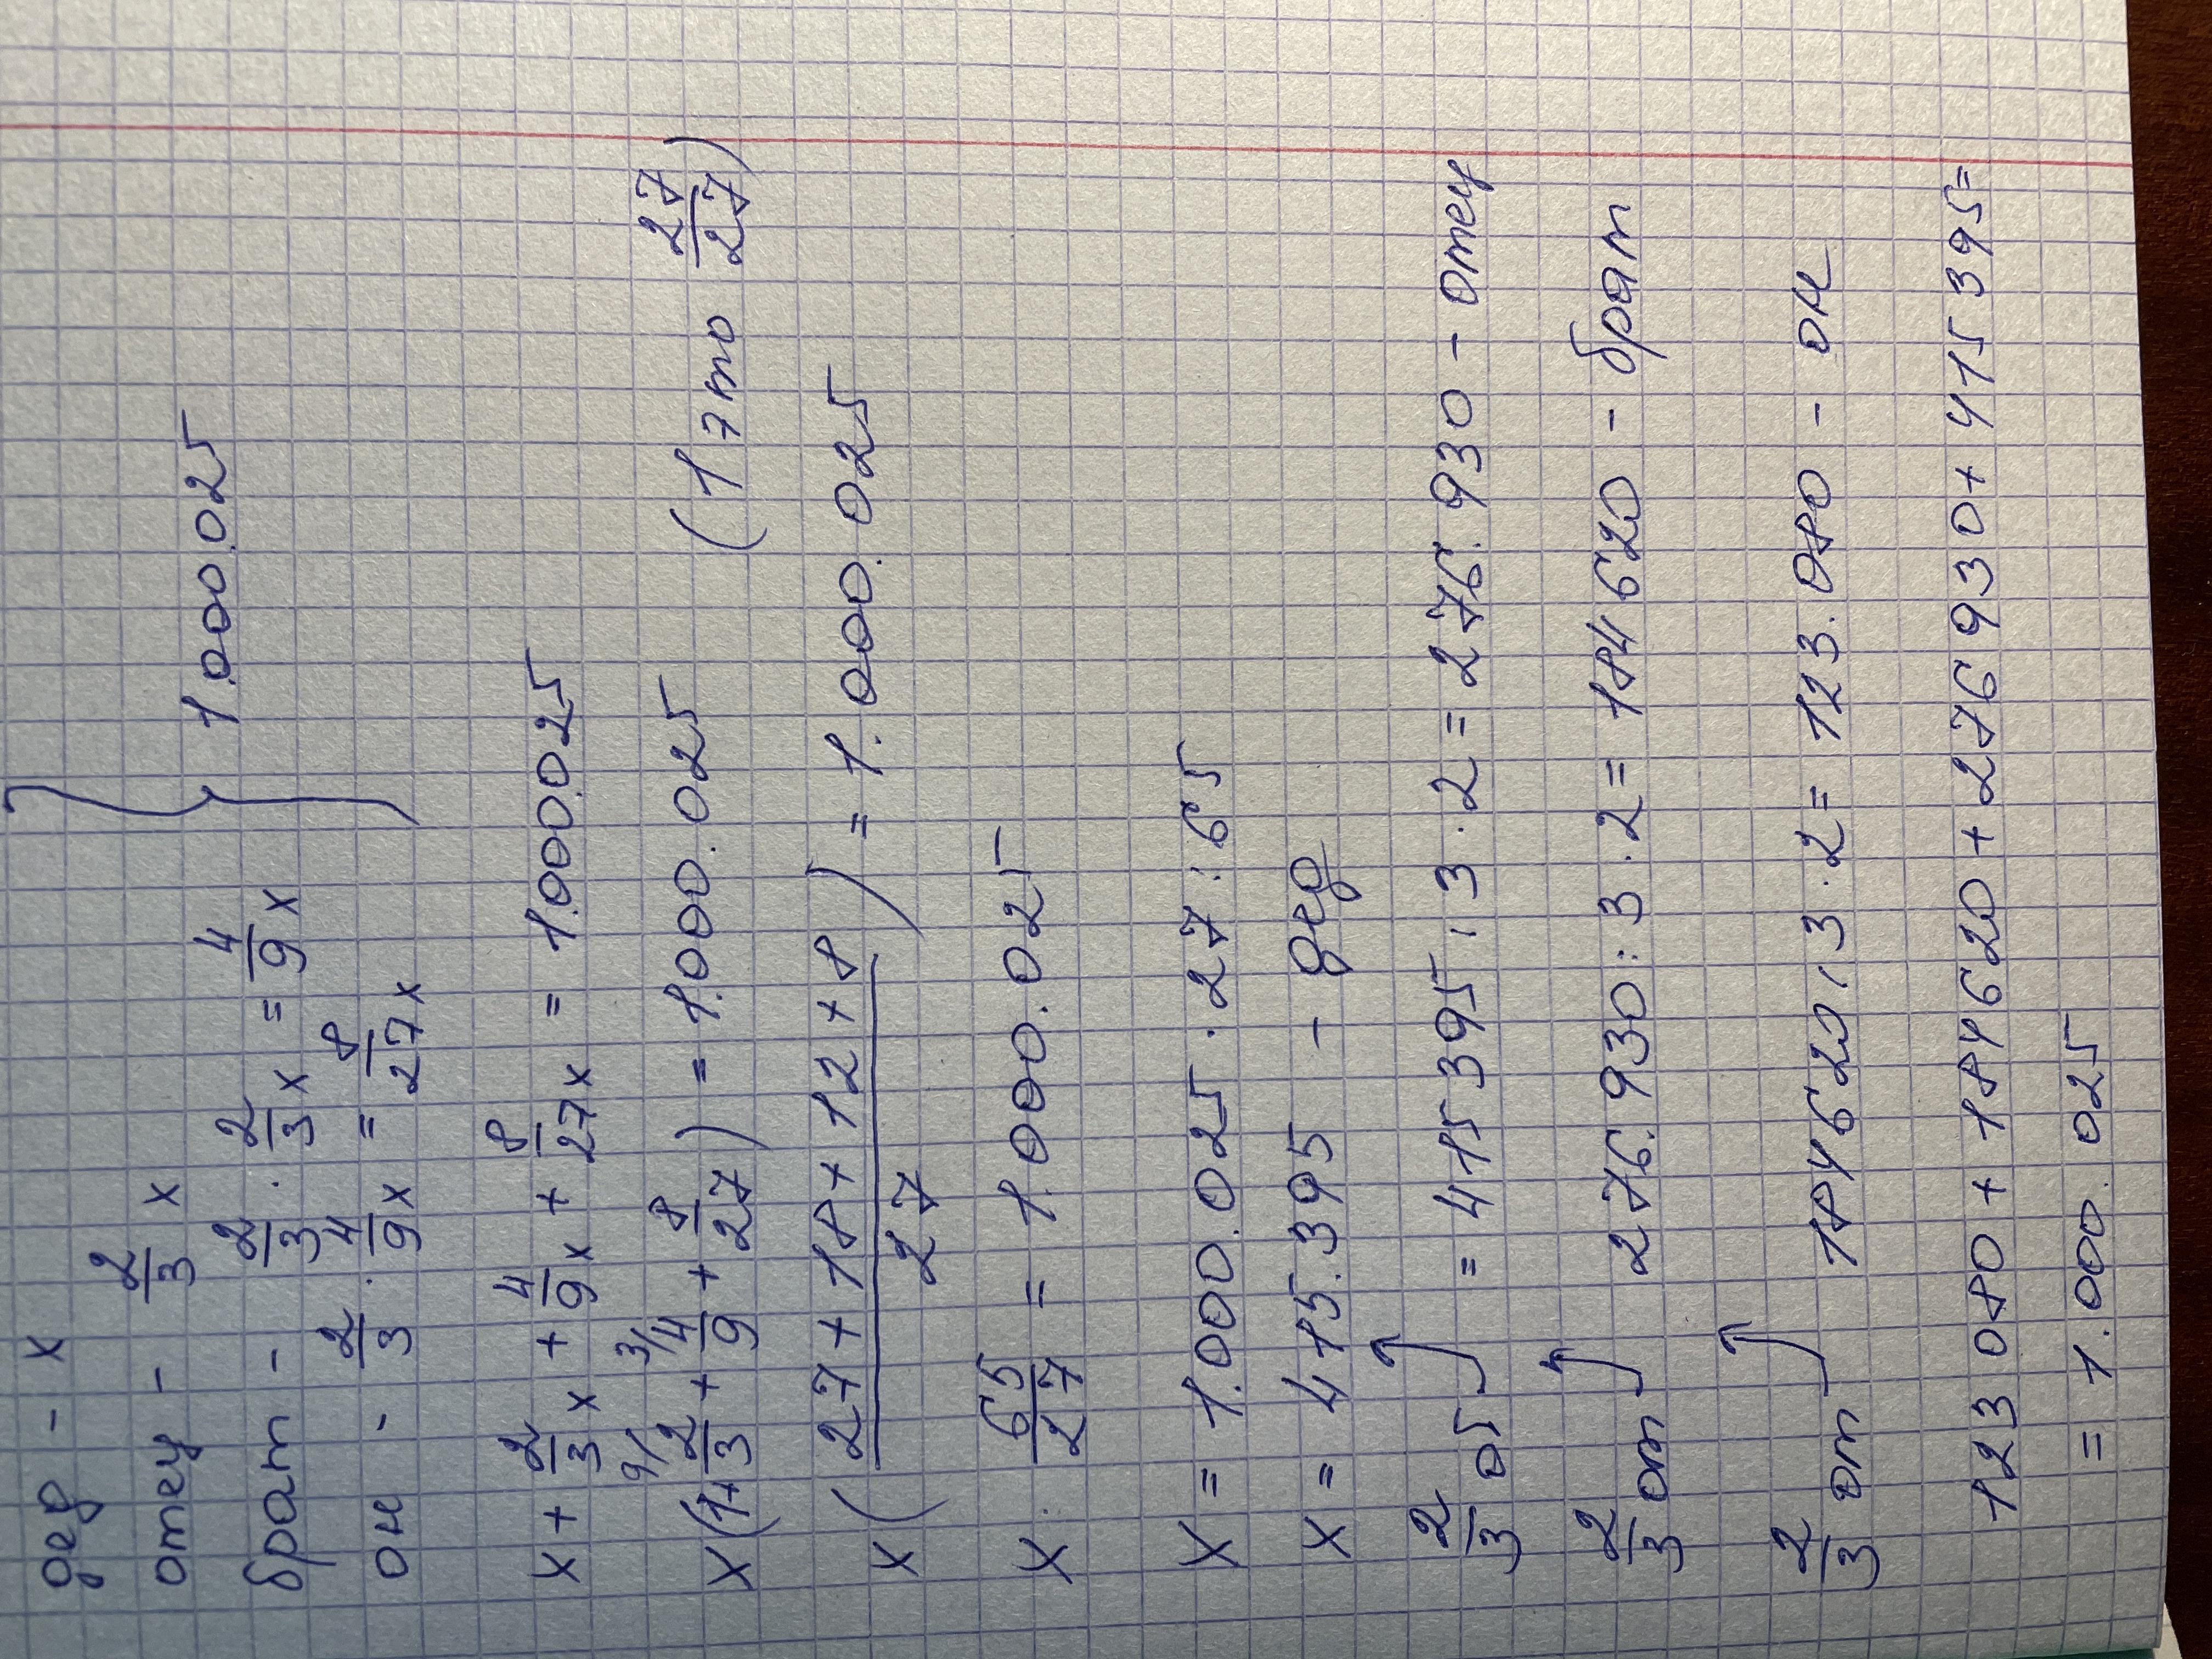 дед - x
отец - 2/3 x
брат - 2/3 · 2/3 x = 4/9 x } 1.000.025
он - 2/3 · 4/9 x = 8/27 x
x + 2/3 x + 4/9 x + 8/27 x = 1.000.025
x (1 + 9/ 2/3 + 3/ 4/9 + 8/27) = 1.000.025 (1 это 27/27)
x ( (27 + 18 + 12 + 8)/27 ) = 1.000.025
x · 65/27 = 1.000.025
x = 1.000.025 · 27 : 65
x = 415.395 - дед
2/3 от = 415395 : 3 · 2 = 276.930 - отец
2/3 от 276.930 : 3 · 2 = 184620 - брат
2/3 от 184620 : 3 · 2 = 123.080 - он
123 080 + 184620 + 276930 + 415395 =
= 1.000.025